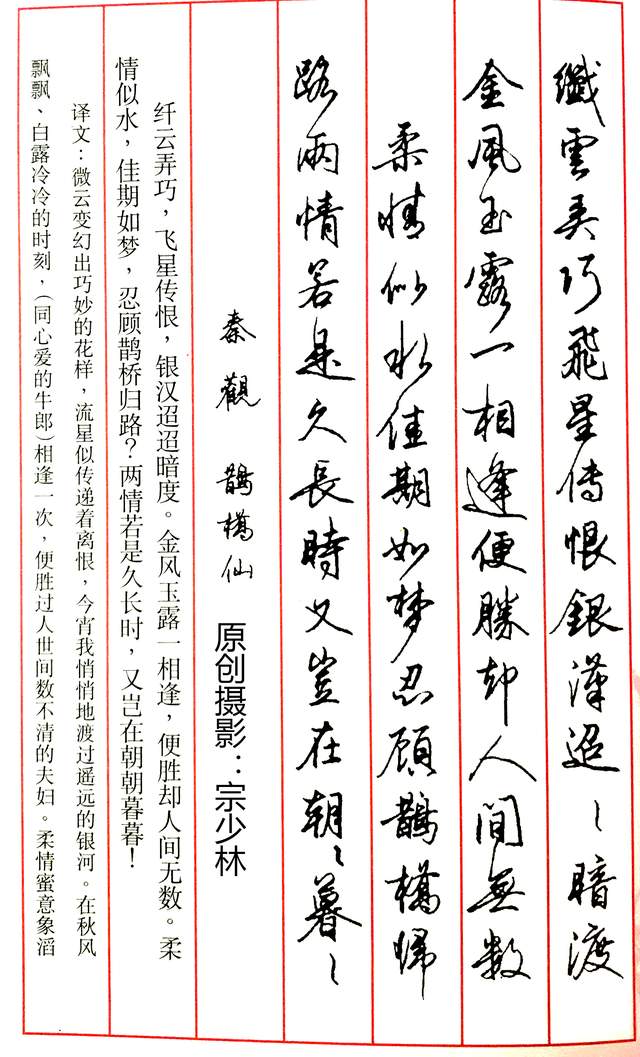 纖雲弄巧飛星傳恨銀漢迢〻暗渡
金風玉露一相逢便勝却人間無數
柔情似水佳期如梦忍顧鵲橋歸
路兩情若是久長時又豈在朝〻暮〻
秦觀 鵲橋仙
原创摄影：宗少林
纤云弄巧，飞星传恨，银汉迢迢暗度。金风玉露一相逢，便胜却人间无数。柔
情似水，佳期如梦，忍顾鹊桥归路？两情若是久长时，又岂在朝朝暮暮！
译文：微云变幻出巧妙的花样，流星似传递着离恨，今宵我悄悄地渡过遥远的银河。在秋风
飘飘、白露冷冷的时刻，（同心爱的牛郎）相逢一次，便胜过人世间数不清的夫妇。柔情蜜意象滔